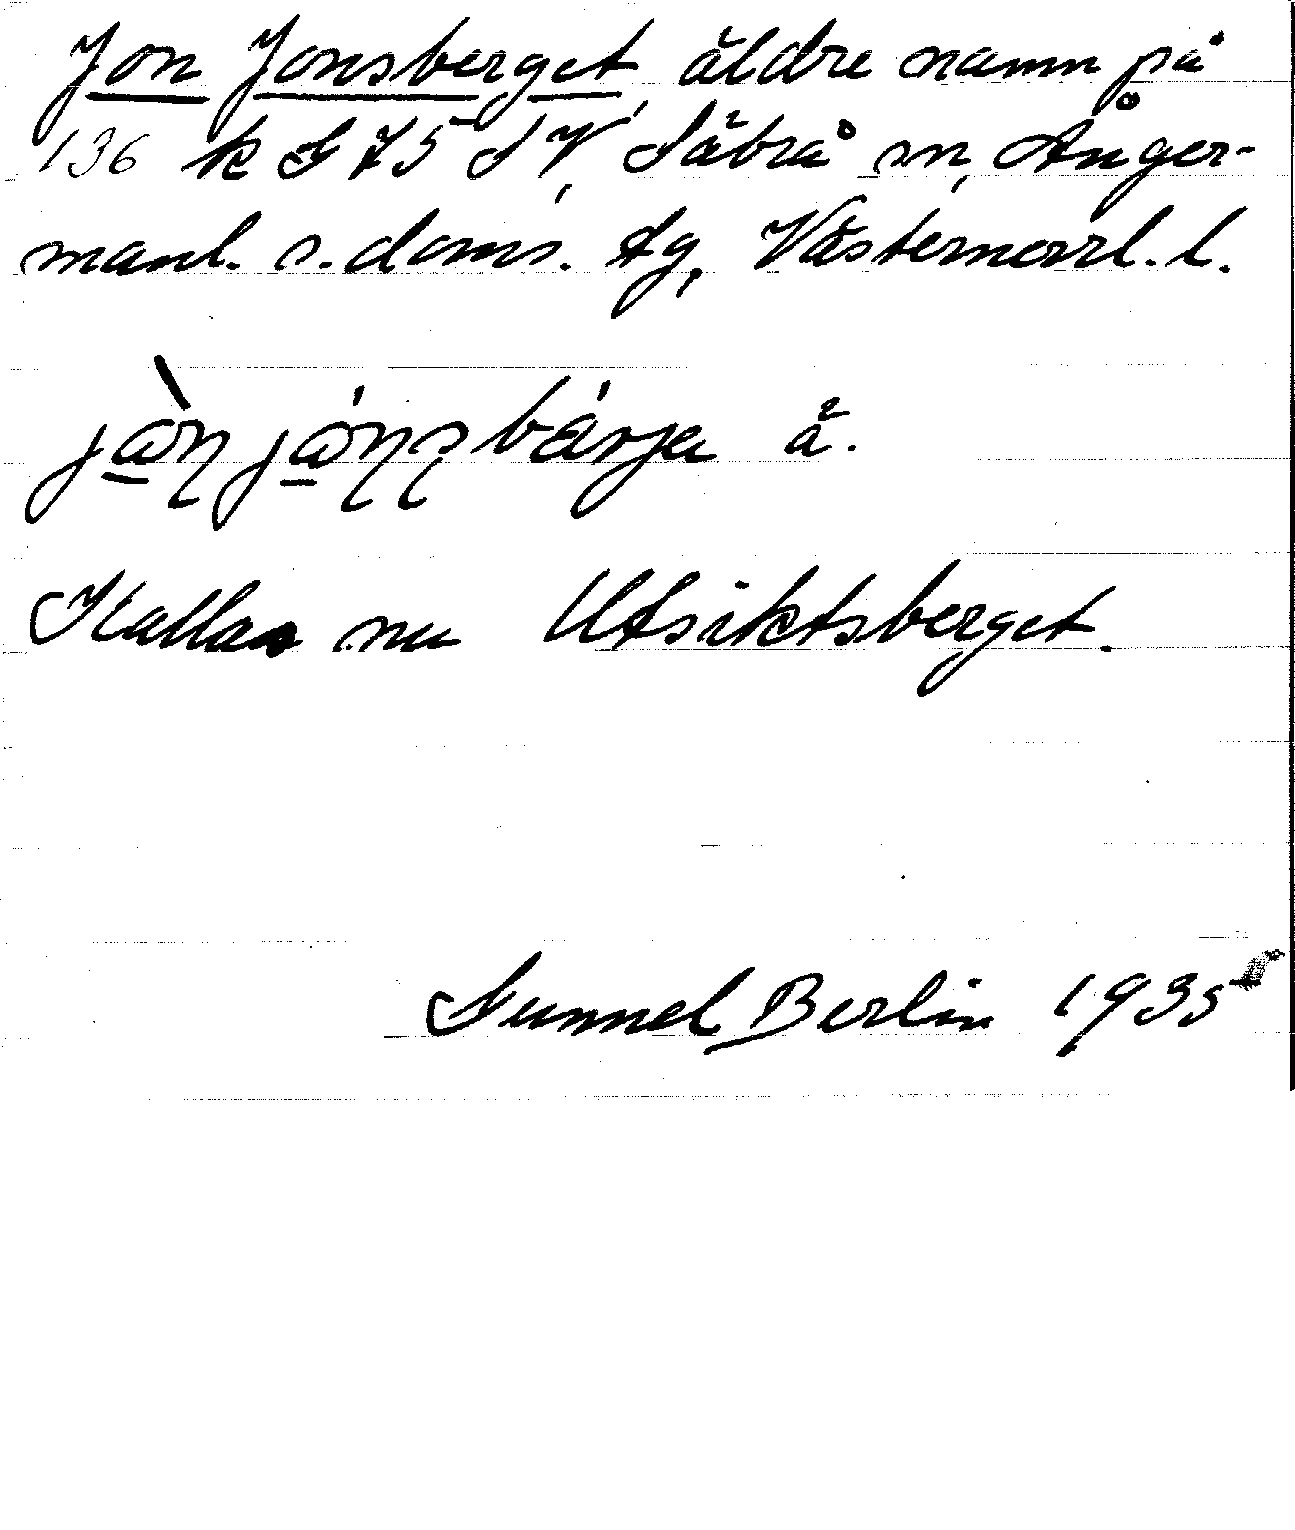 Jon Jonsberget, äldre namn på
136 k G 75 SV, Säbrå sn, Ånger-
manl. s. doms. tg, Västernorrl. l.
bárja ä.
Kallas nu Utsiktsberget.
Gunnel Berlin 1935